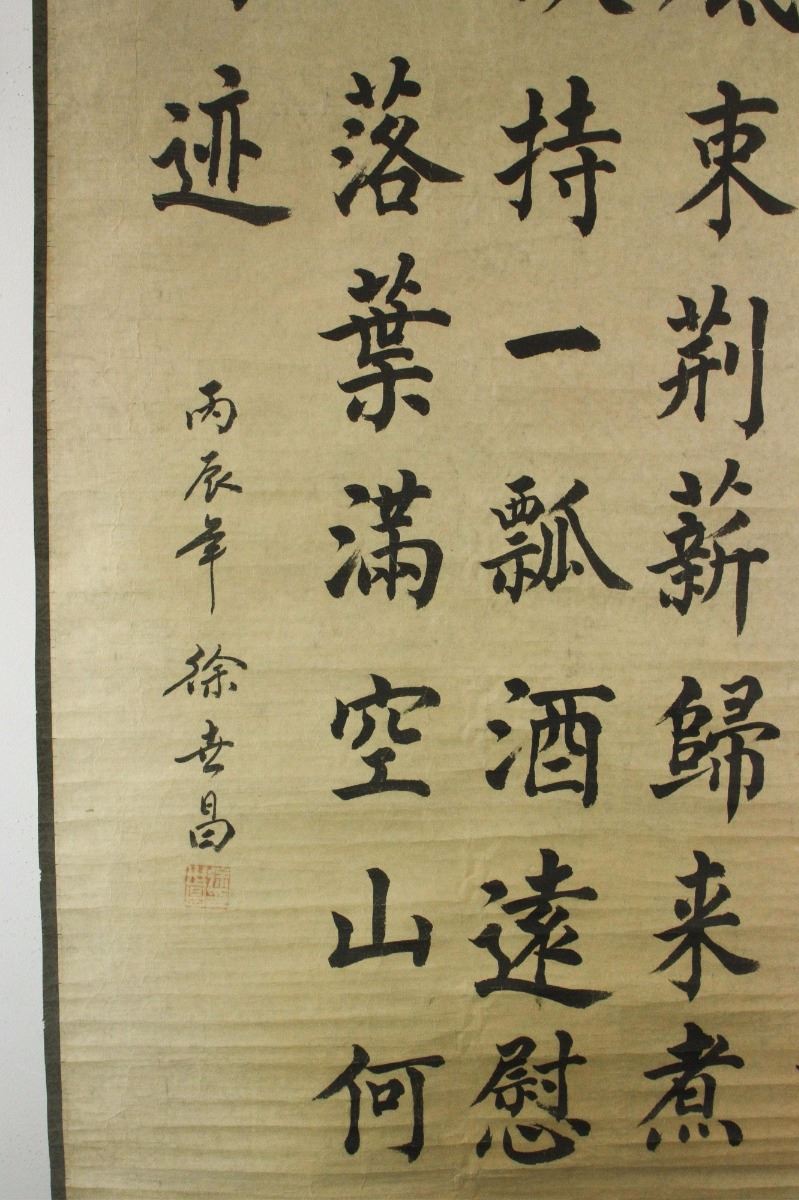 束荆薪歸来煮
持一瓢酒遠慰
落葉滿空山何
迹
丙辰年 徐世昌